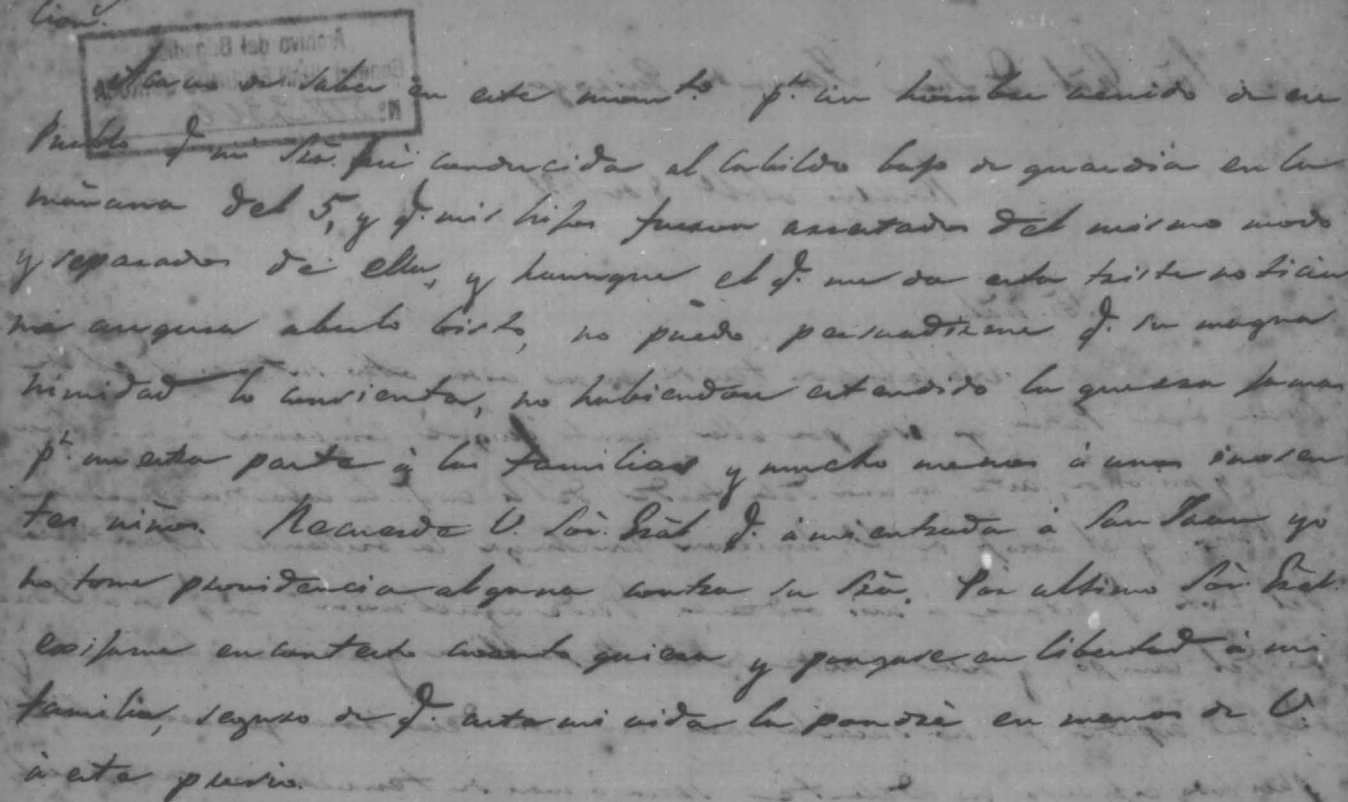 cion.
Acavo de saber en este mom.to p.r un hombre venido de ese
Pueblo q.e mi Sra. fué conducida al Cabildo bajo de guardia en la
mañana del 5, y q.e mis hijos fueron arrestados del mismo modo
y separados de ella, y haunque el q.e me da esta triste noticia
me asegura aberlo bisto, no puedo persuadirme q.e su magna
nimidad lo consienta, no habiendose estendido la guerra jamas
p.r nuestra parte á las familias y mucho menos á unos inosen
tes niños. Recuerde V. Sor. Gral. q.e á mi entrada á San Juan yo
no tome providencia alguna contra su Sra. Por ultimo Sor. Gral.
exijame en contesto cuanto quiera y pongase en libertad á mi
familia, seguro de q.e asta mi vida la pondré en manos de V.
á este precio.